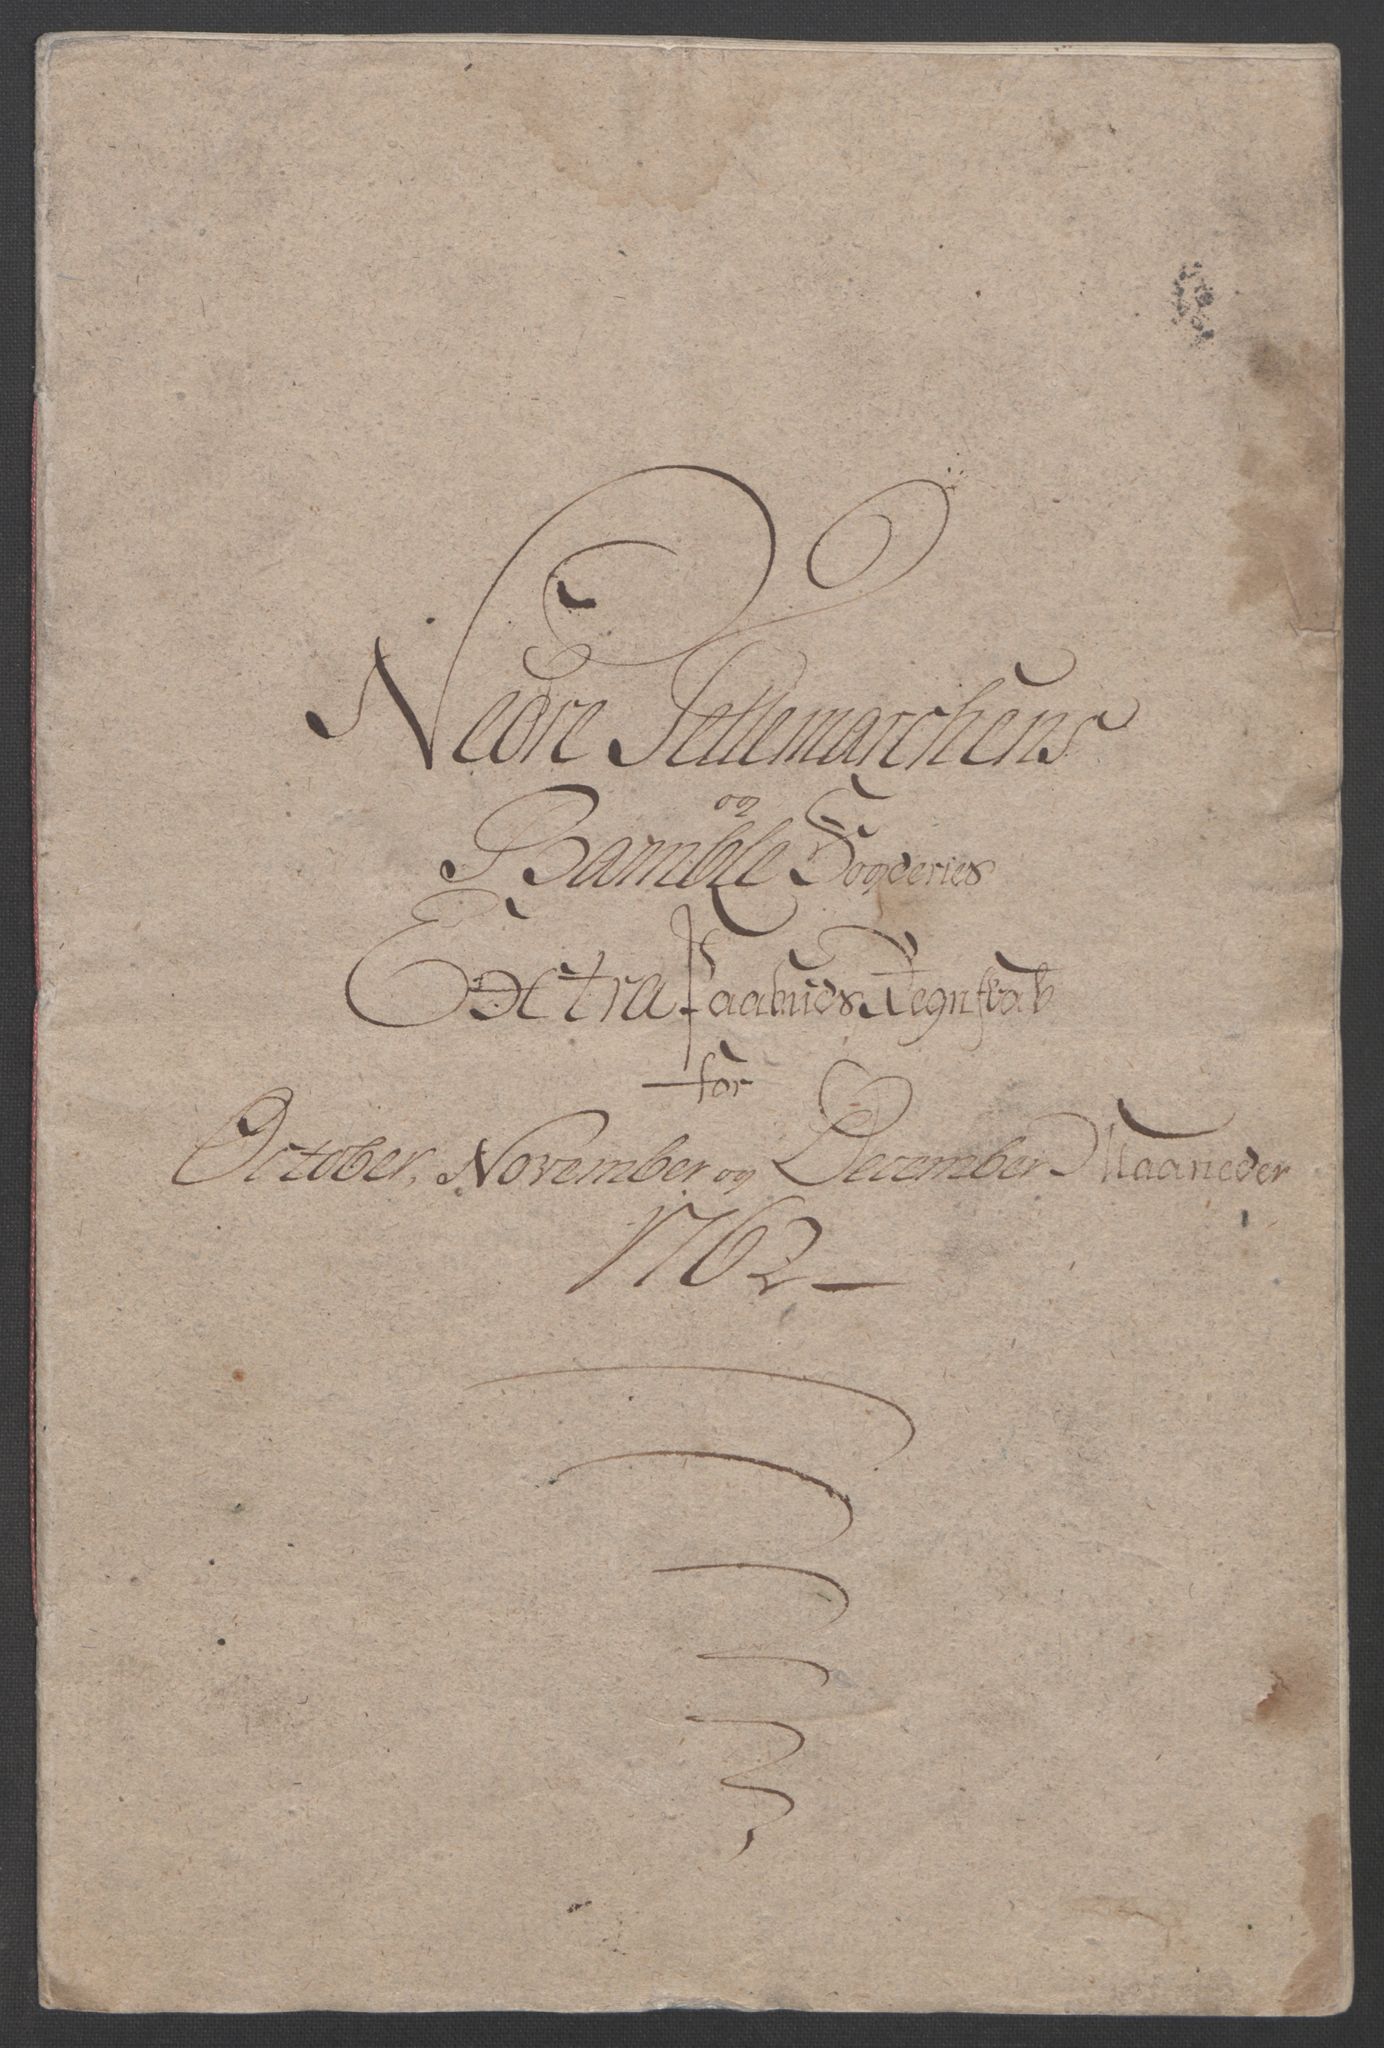 Nedre Tellemarchens
og
Bamble Fogderies
Extra Paabuds Regnskab
for
October, November og December Maaneder
1762